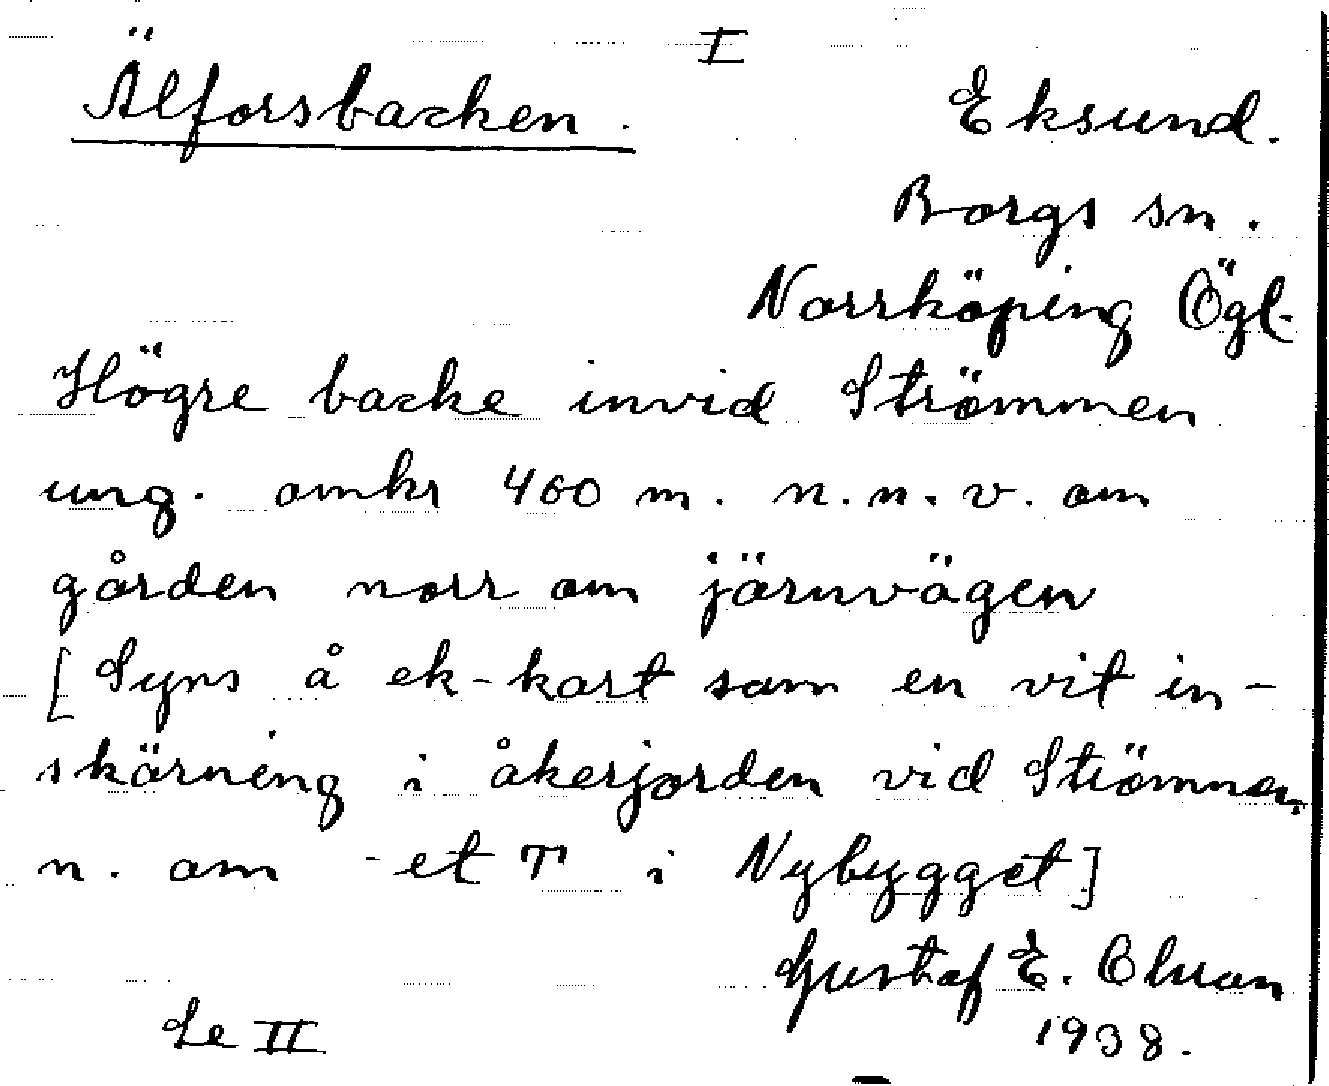 I
Älforsbacken.
Eksund.
Borgs sn.
Norrköping Ögl.
Högre backe invid Strömmen
ung. omkr 400 m. n.n.v. om
gården norr om järnvägen
[Syns å ek-kart som en vit in-
skärning i åkerjorden vid Strömmen
n. om -et T i Nybygget]
Gustaf E. Olsson
1938.
Se II